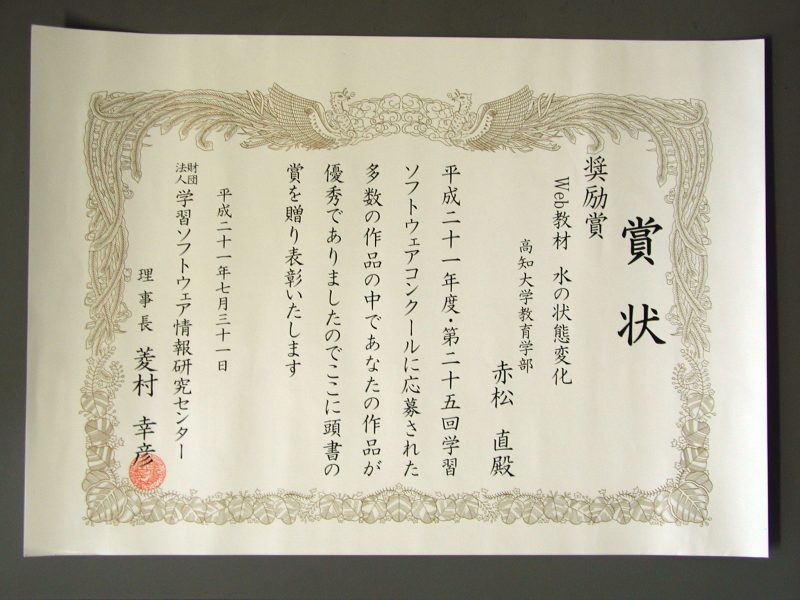 賞状
奨励賞
Web教材 水の状態変化
高知大学教育学部
赤松 直殿
平成二十一年度・第二十五回学習
ソフトウェアコンクールに応募された
多数の作品の中であなたの作品が
優秀でありましたのでここに頭書の
賞を贈り表彰いたします
平成二十一年七月三十一日
財団法人 学習ソフトウェア情報研究センター
理事長 菱村 幸彦